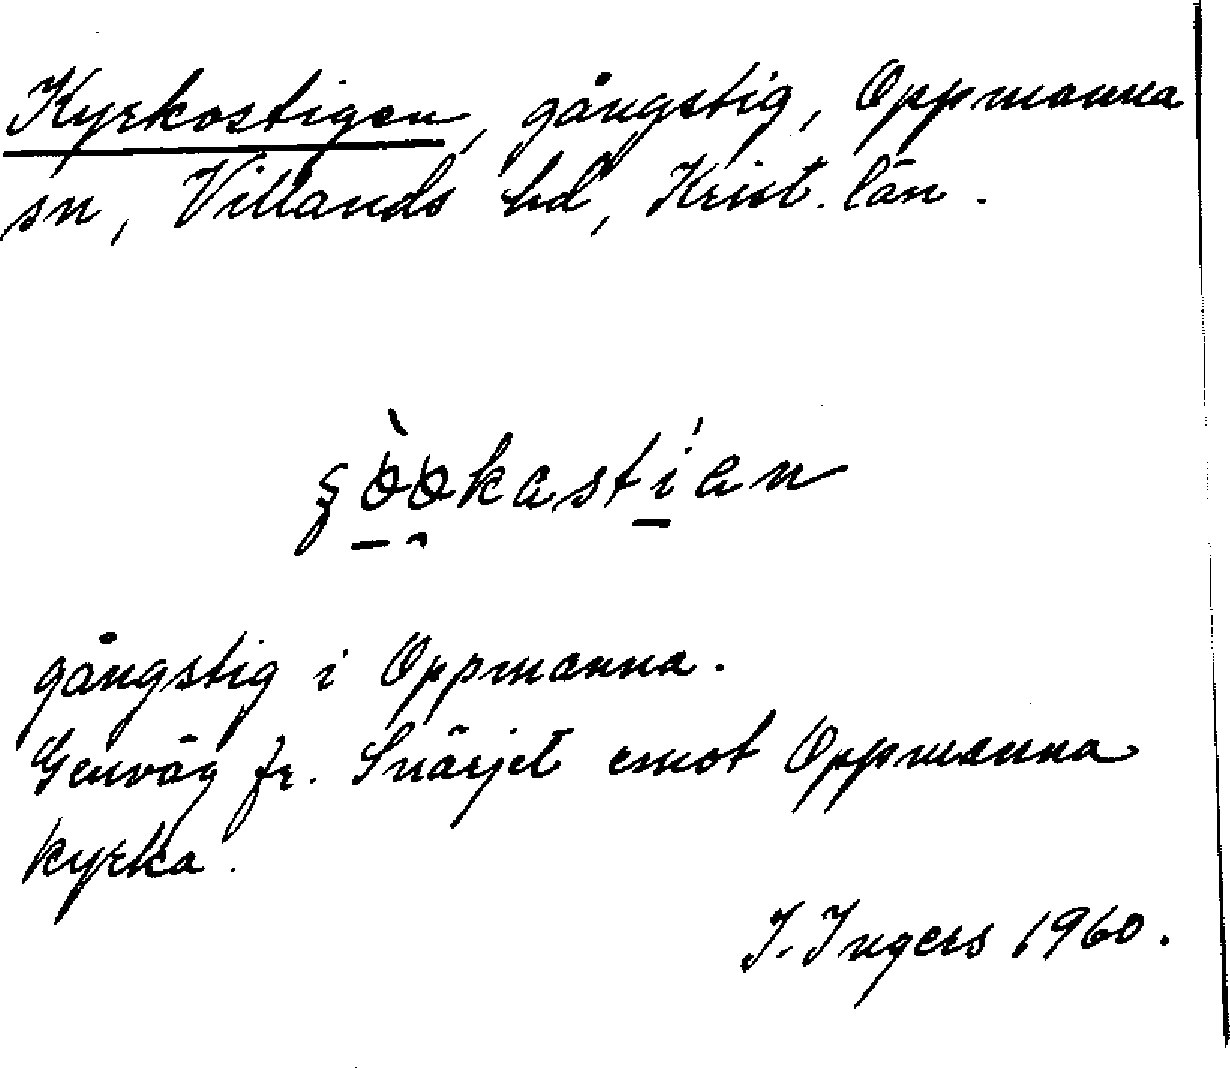 Kyrkostigen, gångstig, Oppmanna
sn, Villands hd, Krist. län.
gångstig i Oppmanna.
Genväg fr. Snärjet emot Oppmanna
kyrka.
I. Ingers 1960.